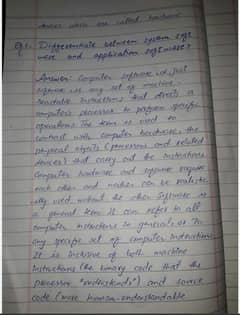 devices which are called hardware
Q2. Differentiate between system soft
ware and application software?
Answer: Computer software is just
software is any set of machine-
readable instructions that directs a
computer's processor to perform specific
operations. The term is used to
contrast with computer hardware, the
physical objects (processors and related
devices) that carry out the instructions
Computer hardware and software require
each other and neither can be realistic
ally used without the other. Software is
a general term. It can refer to all
computer instructions in general or To
any specific set of computer instructions.
It is inclusive of both machine
instructions (the binary code that the
processor "understands") and source
code (more human-understandable